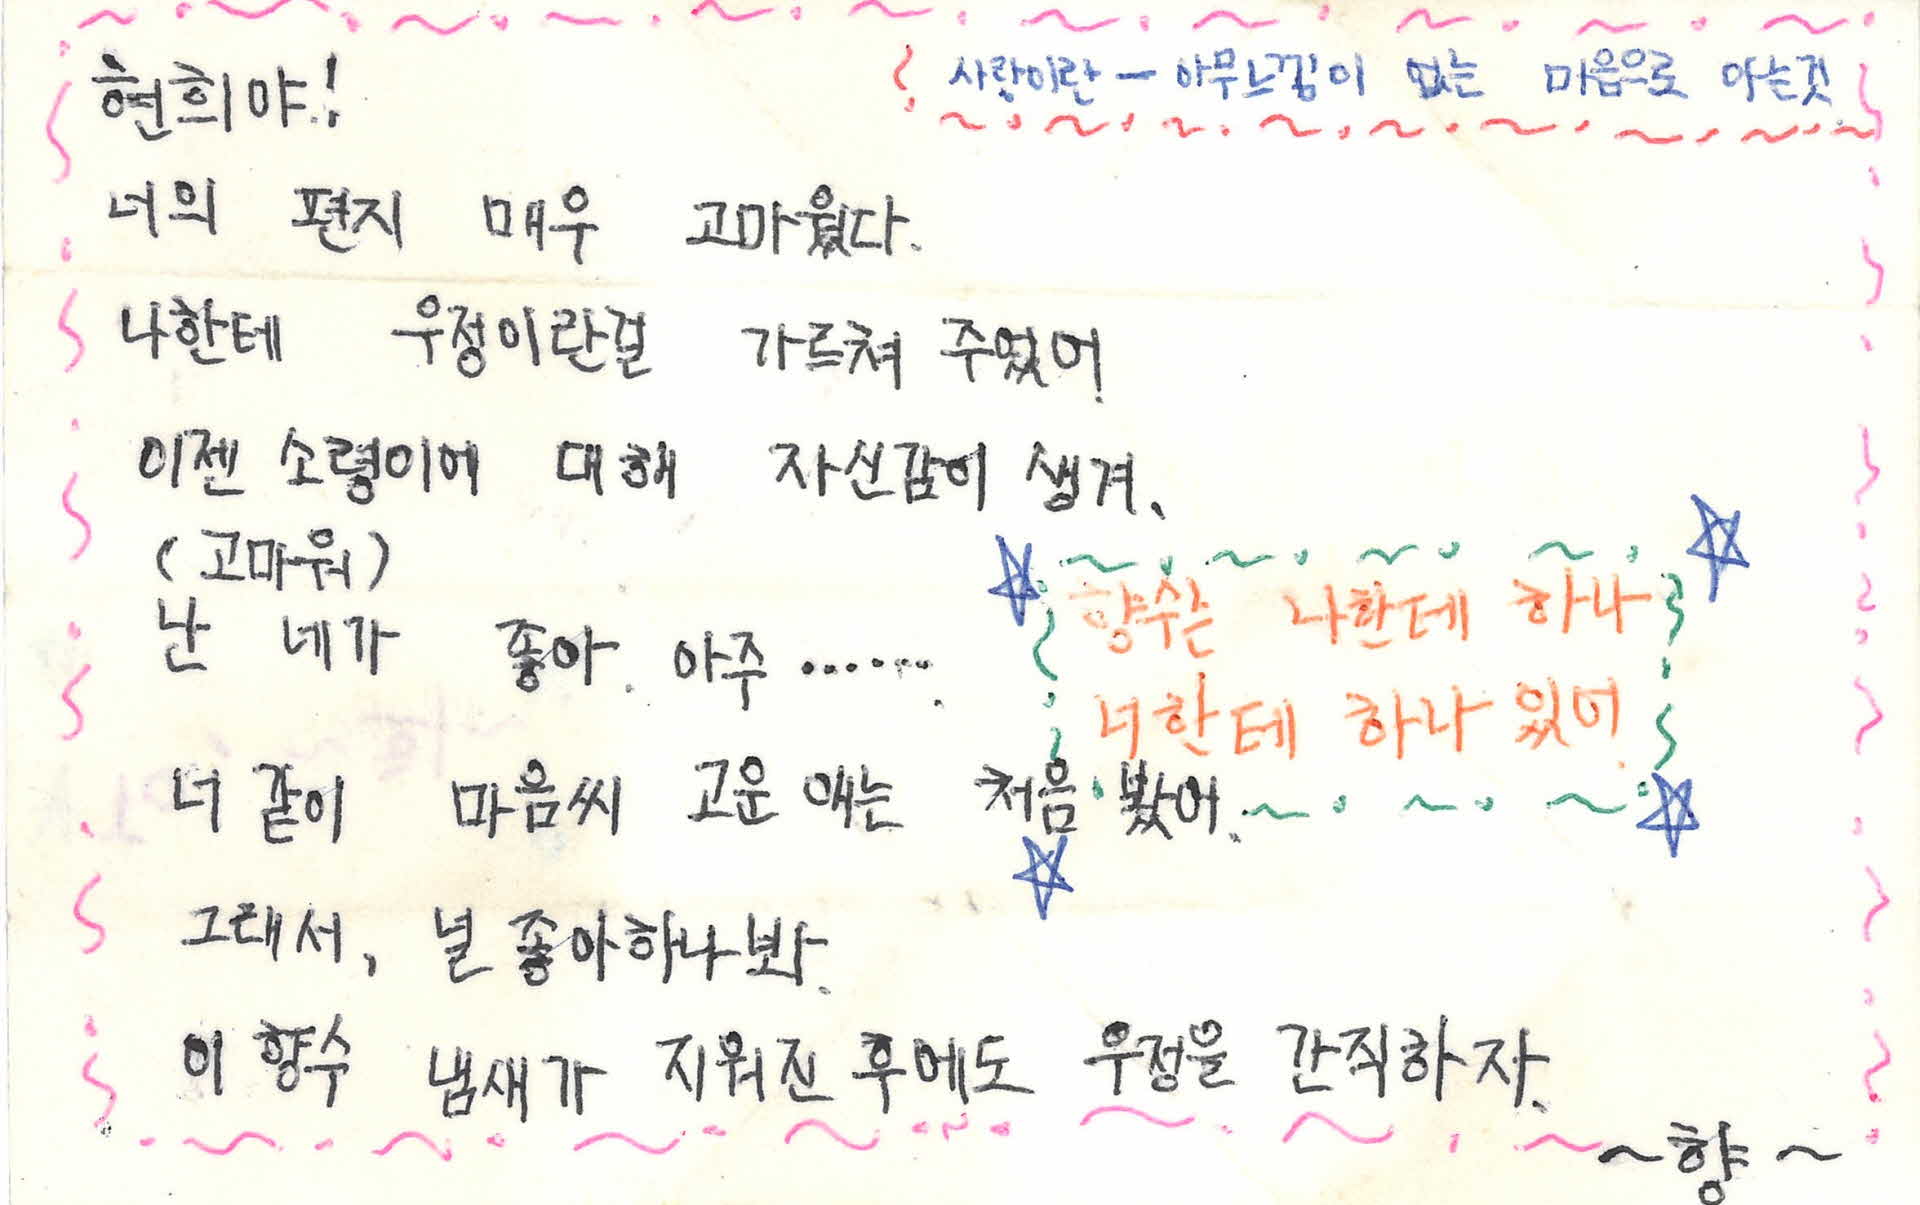 현희야!
사랑이란 — 아무느낌이 없는 마음으로 아는것
너의 편지 매우 고마웠다.
나한테 우정이란걸 가르쳐 주었어.
이젠 소령이에 대해 자신감이 생겨.
(고마워)
난 네가 좋아. 아주 .......
향수는 나한테 하나
너한테 하나 있어.
너 같이 마음씨 고운 애는 처음 봤어.
그래서, 널 좋아하나봐.
이 향수 냄새가 지워진 후에도 우정을 간직하자.
~향~